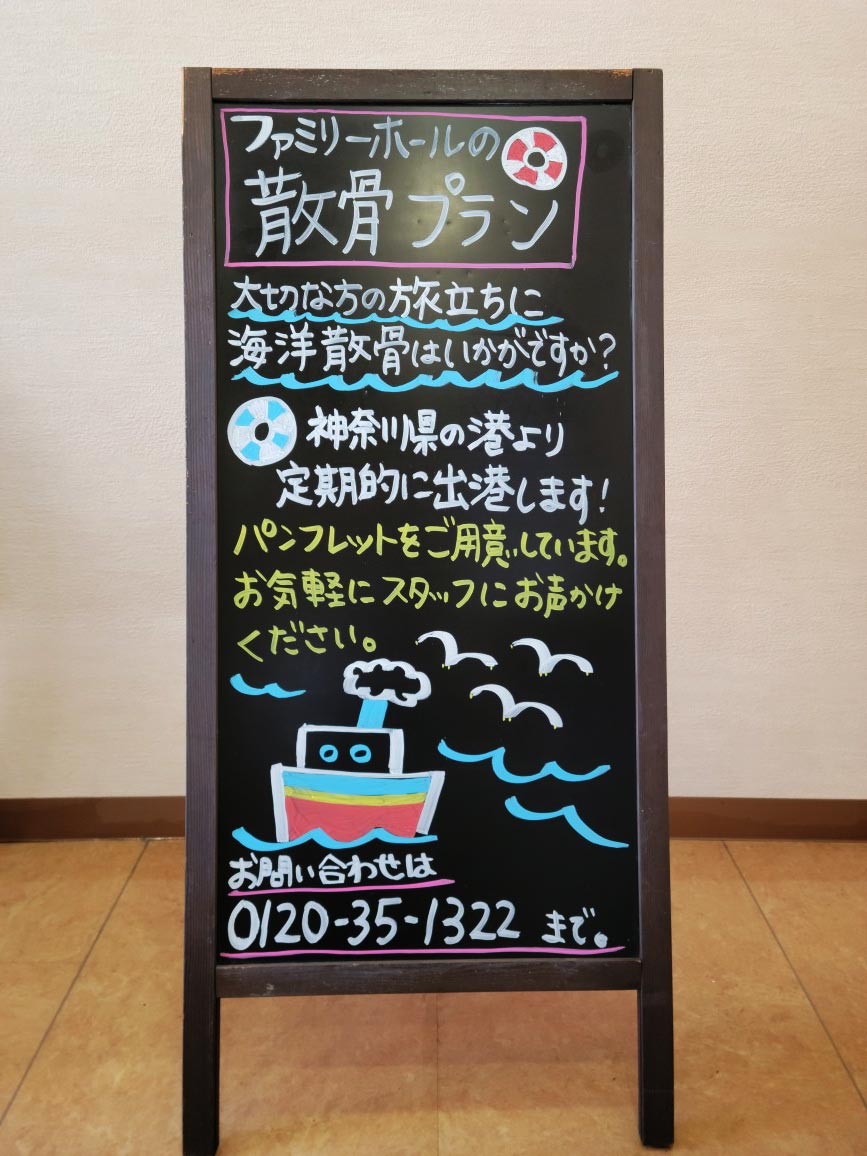 ファミリーホールの
散骨プラン
大切な方の旅立ちに
海洋散骨はいかがですか?
神奈川県の港より
定期的に出港します!
パンフレットをご用意しています。
お気軽にスタッフにお声かけ
ください。
お問い合わせは
0120-35-1322 まで。